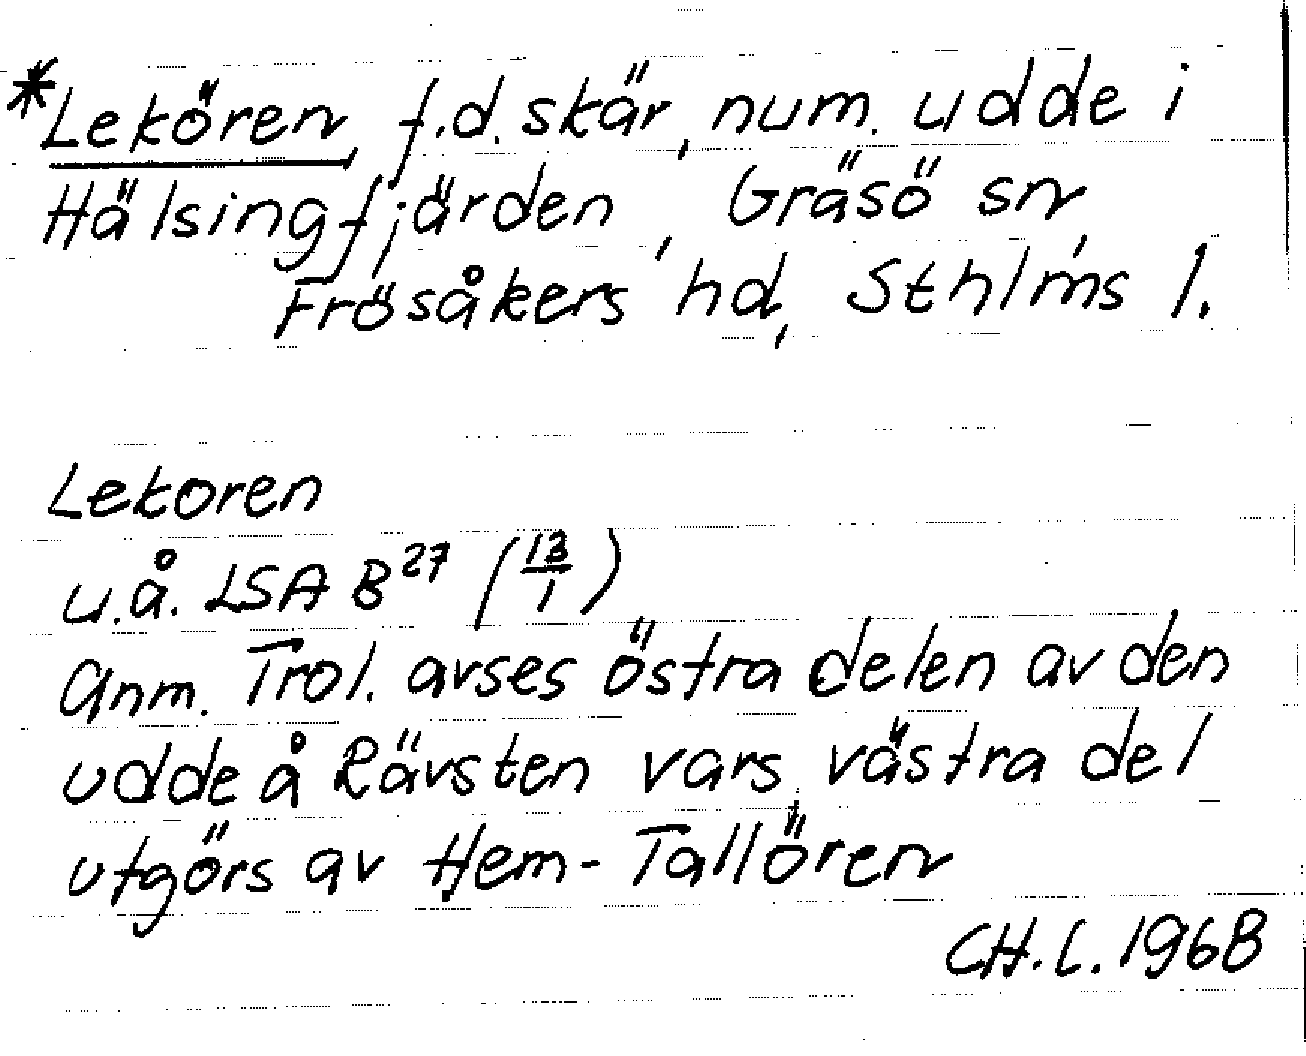 *Lekören, f.d. skär, num. udde i
Hälsingfjärden, Gräsö sn,
Frösåkers hd, Sthlms l.
Lekoren
u.å. LSA B27 (13/1)
Anm. Trol. avses östra delen av den
udde å Rävsten vars västra del
utgörs av Hem-Tallören
CH.L. 1968